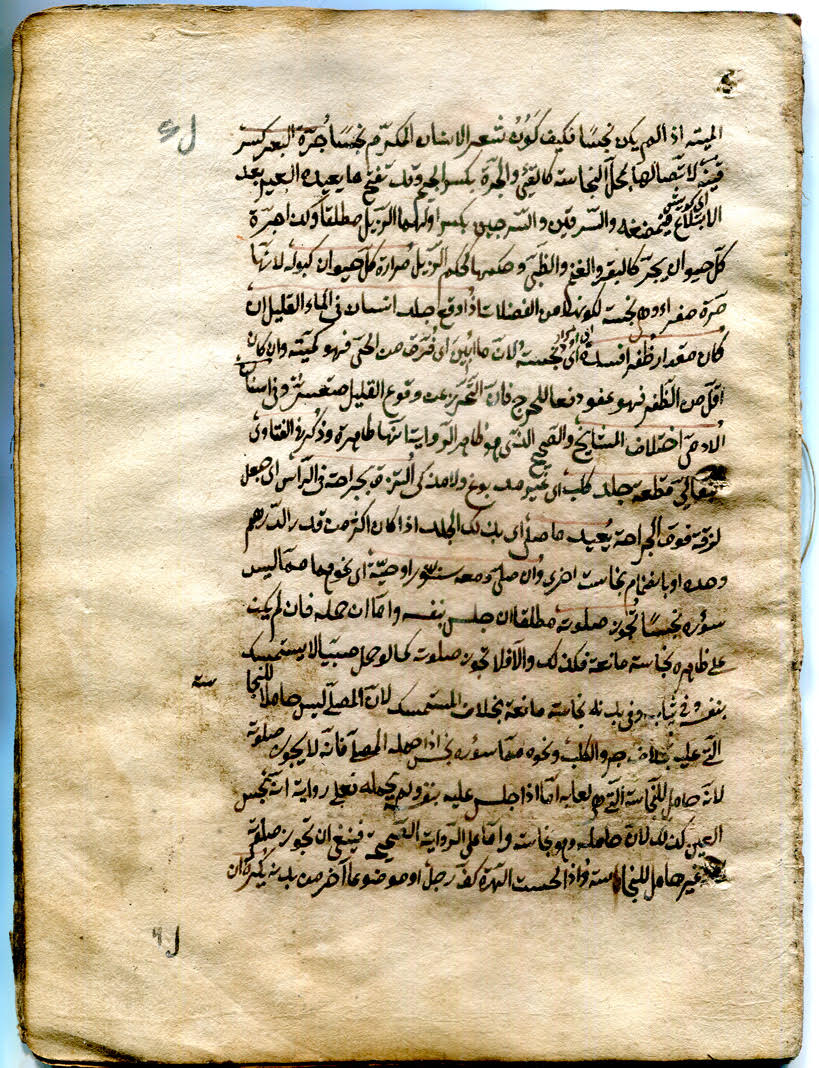 الميتة اذا لم يكن نجسا فكيف يكون شعر الانسان المكرّم نجسًا جُرّة البعير كسر
قينه لاتّصالها بمحلّ النجاسة كالقيئ والجرّة بكسر الجيم وقد تفتح ما يعيده البعير بعد
الابتلاع فيمضغه والسرقين والسرجين بكسر اولهما الزبل مطلقا وكذا جرّة
كلّ حيوان يجترّ كالبقر والغنم والظبي وحكمها كحكم الزبل مُرارة كلّ حيوان كبوله لانّها
مرّة صفراء وهى نجسة لكونها من الفضلات اذُا وقع جلد انسان فى الماء القليل ان
كان مقدار ظفر افسده اى نجسة لانّ ما ابين اى فرّق من الحىّ فهو كميتة وان كان
اقلّ من الظفر فهو عفو دفعا للحرج فانّ التّحرّز عن وقوع القليل متعسّر وفى اسنان
الادمىّ اختلاف المشايخ والصحيح الذى هو ظاهر الرّواية انّها طاهرة وذُكر فى الفتاوى
قطعة جلد كلب اى غير مدبوغ ولا مذكى التزق بجراحة فى الرّأس اى جعل
لزقة فوق الجراحة يُعيد ما صلّى اى بذلك الجلد اذا كان اكثر من قدر الدّرهم
وحده او بانضمام نجاسة اخرى وُان صلّى ومعه سنّور او حيّة اى نحوهما ممّا ليس
سؤره نجسًا تُجوز صلوته مطلقا ان جلس بنفسه وامّا ان حمله فان لم يكن
على ظاهره نجاسة مانعة فكذلك والّا فلا تجوز صلوته كما لو حمل صبيّا لا يستمسك
بنفسه وفى ثيابه وفى بدنه نجاسة مانعة بخلاف المستمسك لانّ المصلّى ليس حاملا للنجا سة
الّتى عليه بخلاف جرو الكلب ونحوه ممّا سؤره نجس اذا حمله المصلّى فانّه لا يجوز صلوته
لانّه حامل للنجاسة الّتى هى لعابه امّا اذا جلس عليه بنفسه ولم يحمله فعلى رواية انّه نجس
العين كذلك لانّ حامله وهو نجاسة وامّا على الرّواية الصّحيحة فينبغى ان تجوز صلوته
غير حامل للنجاسة وُاذا لحست الهرّة كفّ رجل او موضوعا آخر من بدنه يُكره ان